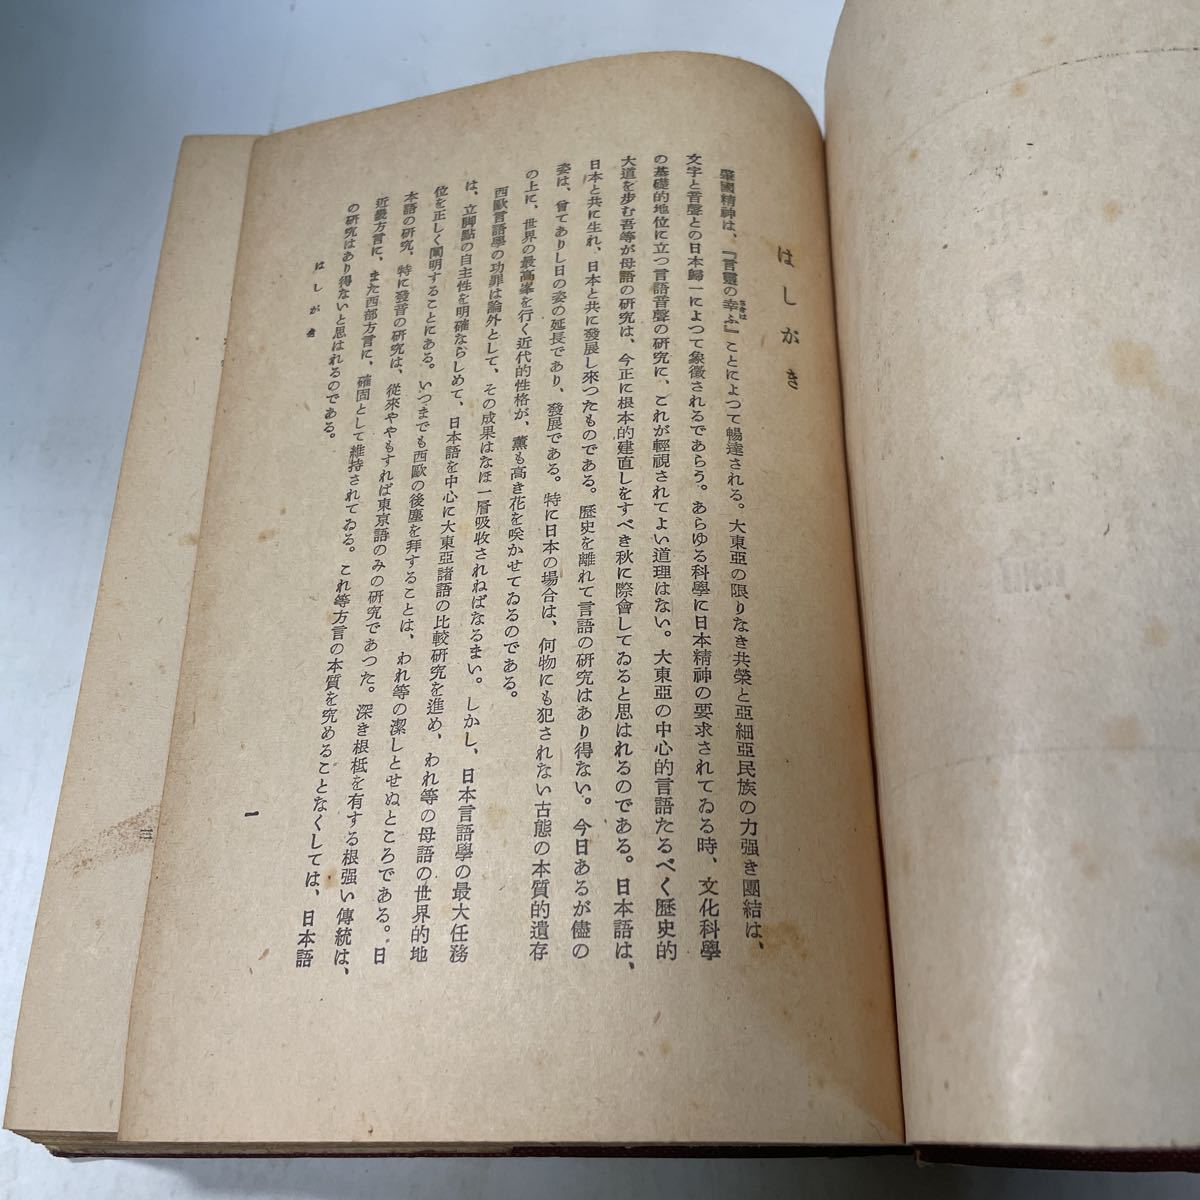 はしがき
肇國精神は、『言靈の幸ふ』ことによつて暢達される。大東亞の限りなき共榮と亞細亞民族の力强き團結は、
さきは
文字と音聲との日本歸一によつて象徵されるであらう。あらゆる科學に日本精神の要求されてゐる時、文化科學
の基礎的地位に立つ言語音聲の研究に、これが輕視されてよい道理はない。大東亞の中心的言語たるべく歷史的
大道を步む吾等が母語の研究は、今正に根本的建直しをすべき秋に際會してゐると思はれるのである。日本語は、
日本と共に生れ、日本と共に發展し來つたものである。歷史を離れて言語の研究はあり得ない。今日あるが儘の
姿は、曾てありし日の姿の延長であり、發展である。特に日本の場合は、何物にも犯されない古態の本質的遺存
の上に、世界の最高峯を行く近代的性格が、薰も高き花を咲かせてゐるのである。
西歐言語學の功罪は論外として、その成果はなほ一層吸收されねばなるまい。しかし、日本言語學の最大任務
は、立脚點の自主性を明確ならしめて、日本語を中心に大東亞諸語の比較硏究を進め、われ等の母語の世界的地
位を正しく闡明することにある。いつまでも西歐の後塵を拜することは、われ等の潔しとせぬところである。日
本語の研究、特に發音の研究は、從來ややもすれば東京語のみの研究であつた。深き根柢を有する根强い傳統は、
近畿方言に、また西部方言に、確固として維持されてゐる。これ等方言の本質を究めることなくしては、日本語
の研究はあり得ないと思はれるのである。
はしがき
一
三